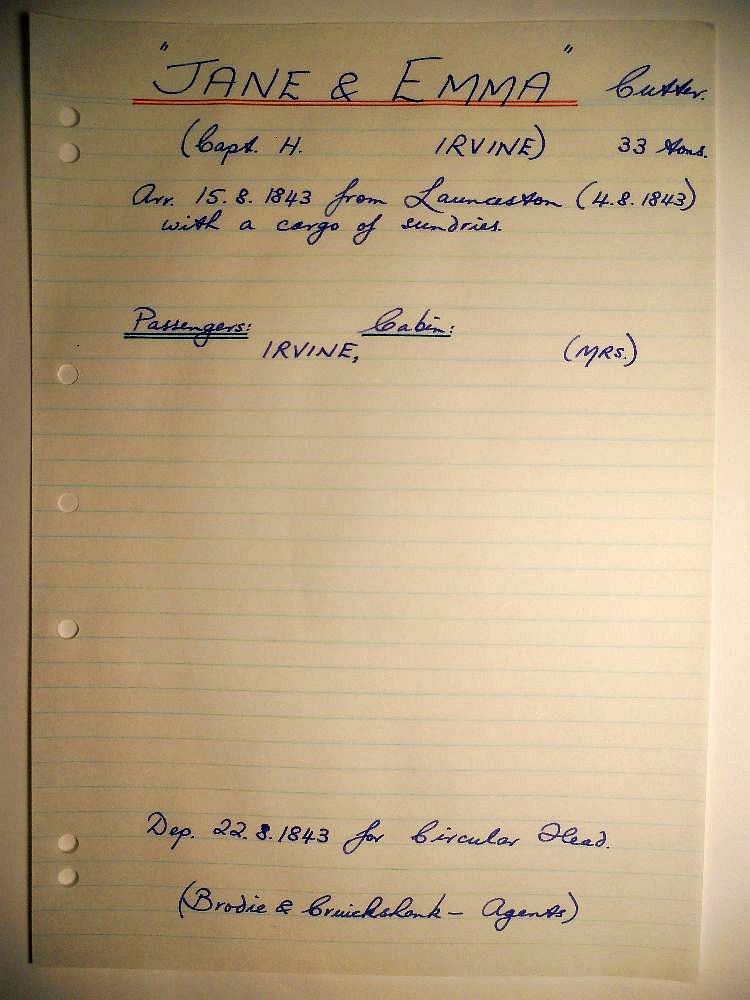 "JANE & EMMA" Cutter.
(Capt. H. IRVINE) 33 tons.
Arr. 15.8.1843 from Launceston (4.8.1843)
with a cargo of sundries.
Passengers: Cabin:
IRVINE, (MRS.)
Dep. 22.8.1843 for Circular Head.
(Brodie & Cruickshank - Agents)